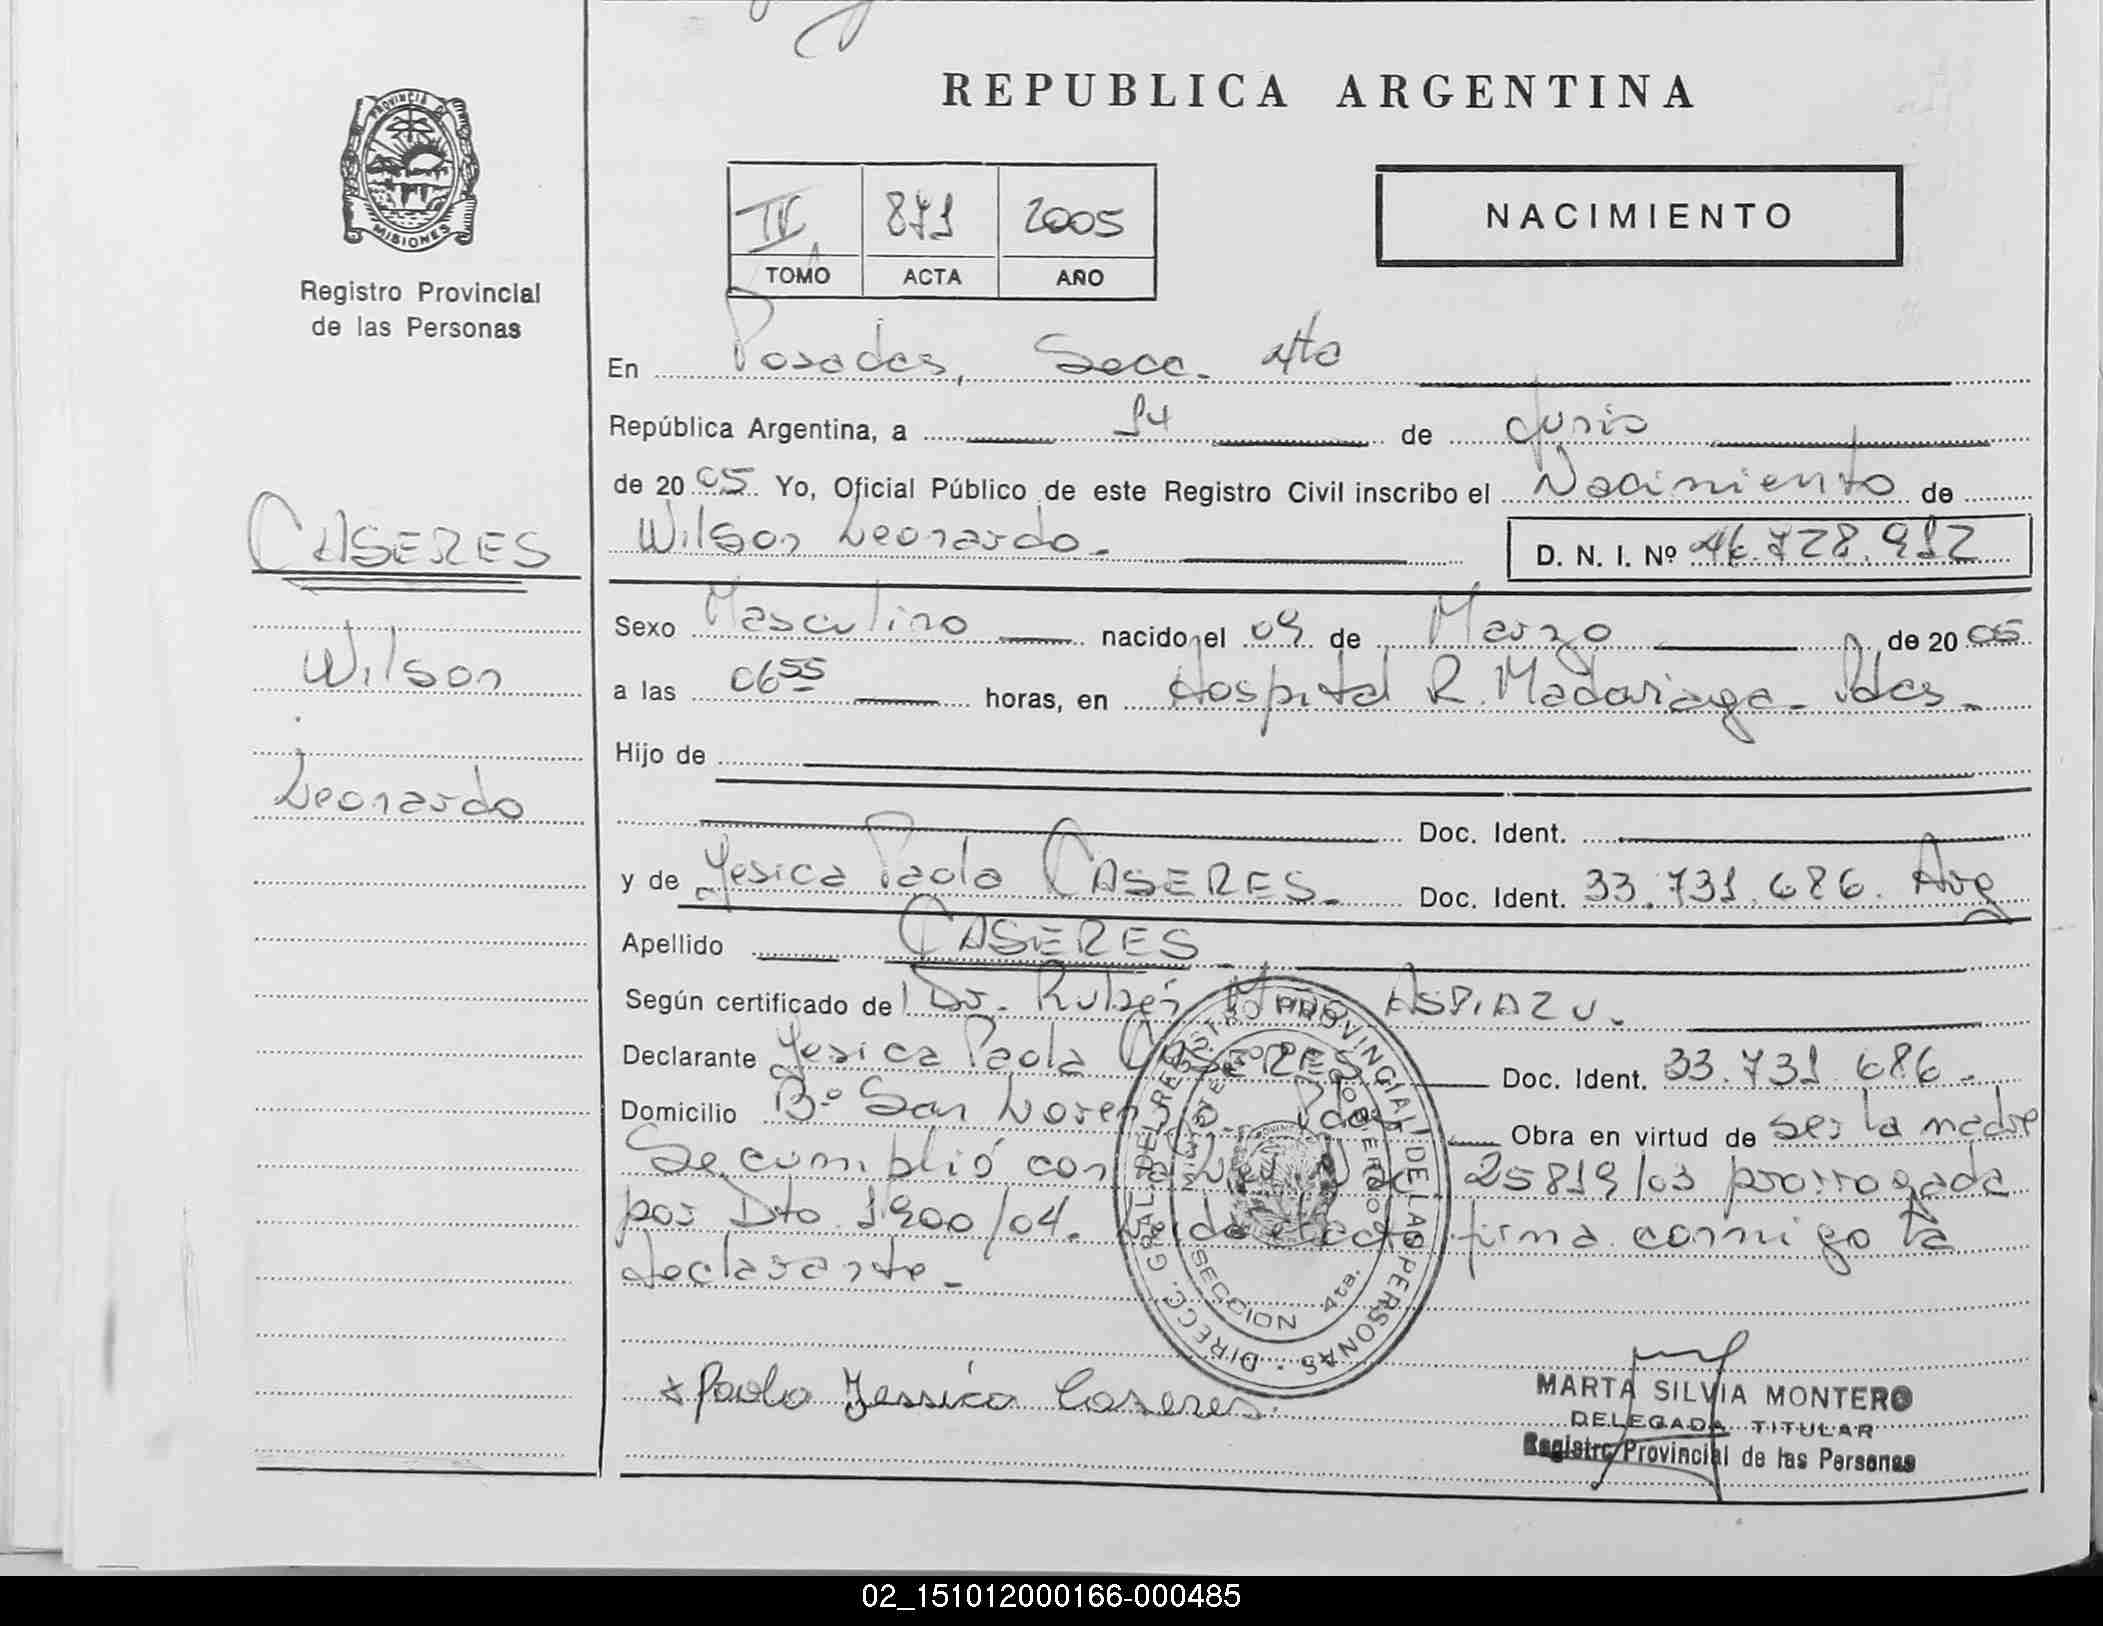 REPUBLICA ARGENTINA
PROVINCIA DE
MISIONES
Registro Provincial
de las Personas
IV 871 2005
TOMO ACTA AÑO
NACIMIENTO
CASERES
Wilson
Leonardo
En Posadas, Secc. 4ta
República Argentina, a 14 de Junio
de 2005 Yo, Oficial Público de este Registro Civil inscribo el Nacimiento de
Wilson Leonardo.- D. N. I. Nº 46.728.912
Sexo Masculino nacido el 09 de Marzo de 2005
a las 06 55 horas, en Hospital R. Madariaga - Pdas.-
Hijo de
Doc. Ident.
y de Yesica Paola CASERES.- Doc. Ident. 33.731.686. Arg
Apellido CASERES
Según certificado de Dr. Rubén ASPIAZU.
Declarante Yesica Paola CASERES Doc. Ident. 33.731.686.-
Domicilio Bº San Lorenzo - Pdas Obra en virtud de ser la madre
Se cumplió con la Ley 25819/03 prorrogada
por Dto 1900/04. Leida el acta firma conmigo la
declarante.-
DIRECC. GRAL. DEL REGISTRO PROVINCIAL DE LAS PERSONAS
MINISTERIO DE GOBIERNO
SECCION 4ta.
x Paola Jessica Caseres.
MARTA SILVIA MONTERO
DELEGADA TITULAR
Registro Provincial de las Personas
02_151012000166-000485